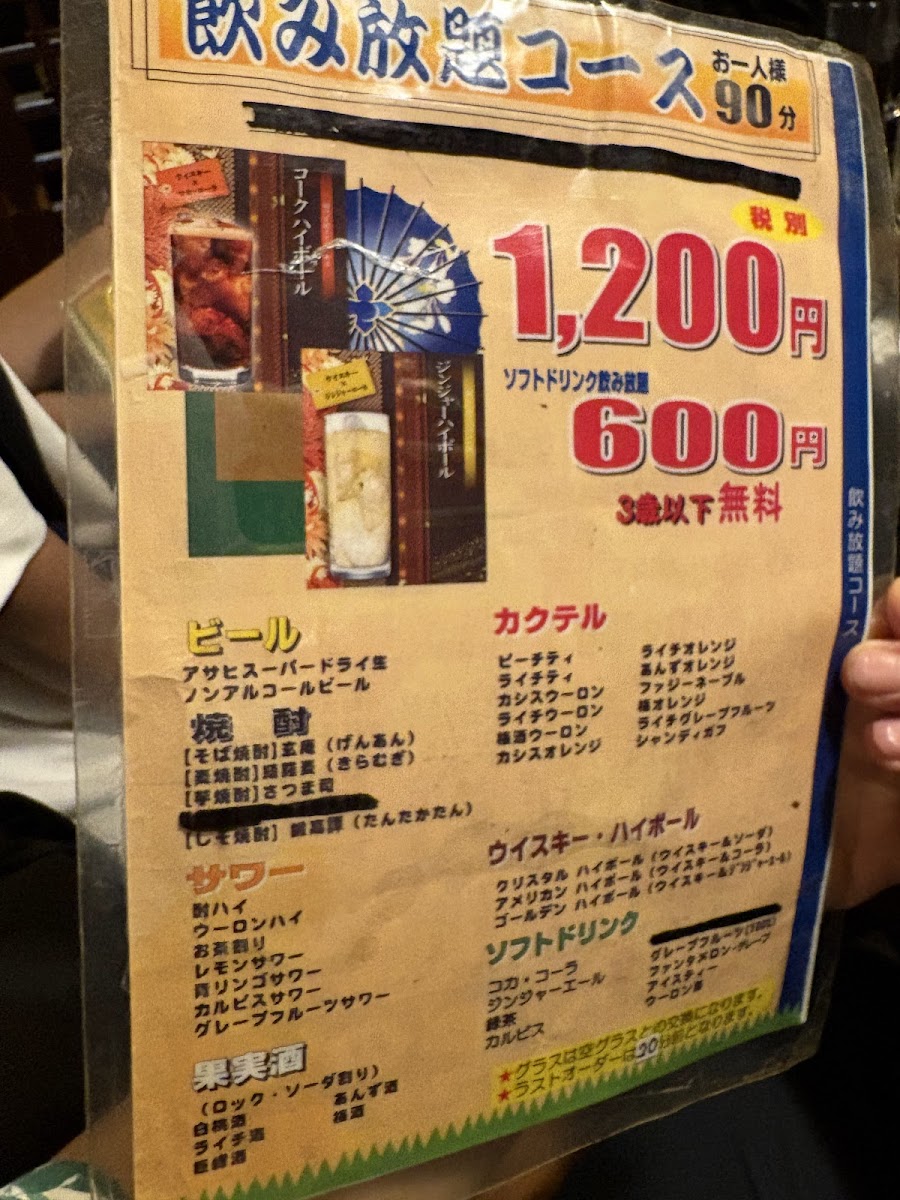 飲み放題コース
お一人様
90分
税別
1,200円
ソフトドリンク飲み放題
600円
3歳以下無料
コークハイボール
ウイスキー
×
ジンジャーハイボール
ウイスキー
×
ジンジャーエール
飲み放題コース
ビール
アサヒスーパードライ生
ノンアルコールビール
焼 酎
【そば焼酎】玄庵（げんあん）
【麦焼酎】綺羅麦（きらむぎ）
【芋焼酎】さつま司
【しそ焼酎】鍛高譚（たんたかたん）
サワー
酎ハイ
ウーロンハイ
お茶割り
レモンサワー
青リンゴサワー
カルピスサワー
グレープフルーツサワー
果実酒
（ロック・ソーダ割り）
白桃酒
ライチ酒
巨峰酒
あんず酒
梅酒
カクテル
ピーチティ
ライチティ
カシスウーロン
ライチウーロン
梅酒ウーロン
カシスオレンジ
ライチオレンジ
あんずオレンジ
ファジーネーブル
梅オレンジ
ライチグレープフルーツ
シャンディガフ
ウイスキー・ハイボール
クリスタル ハイボール（ウイスキー&ソーダ）
アメリカン ハイボール（ウイスキー&コーラ）
ゴールデン ハイボール（ウイスキー&ｼﾞﾝｼﾞｬｰｴｰﾙ）
ソフトドリンク
コカ・コーラ
ジンジャーエール
緑茶
カルピス
グレープフルーツ(100%)
ファンタメロン・グレープ
アイスティー
ウーロン茶
★グラスは空グラスとの交換になります。
★ラストオーダーは20分前となります。